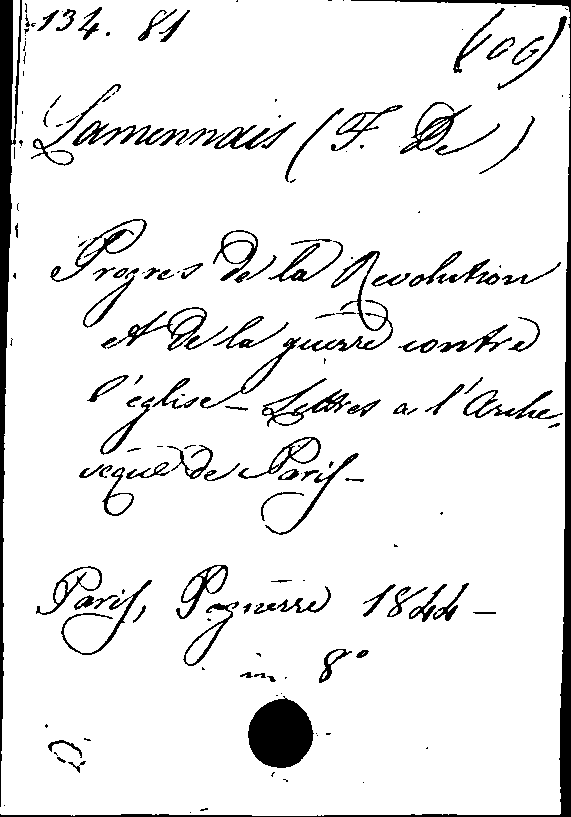 134. 81
(106)
Lamennais (F. De)
Progres de la Revolution
et de la guerre contre
l'église - Lettres a l'Arche-
vêque de Paris -
Paris, Pagnerre 1844 -
in 8°